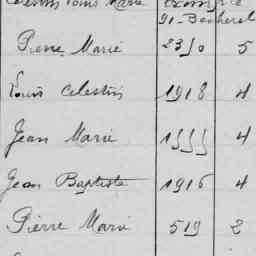 Celestin Louis Marie
91. Becherel
Pierre Marié 2350 5
Louis Celestin 1918 4
Jean Marie 1555 4
Jean Baptiste 1916 4
Pierre Marié 519 2